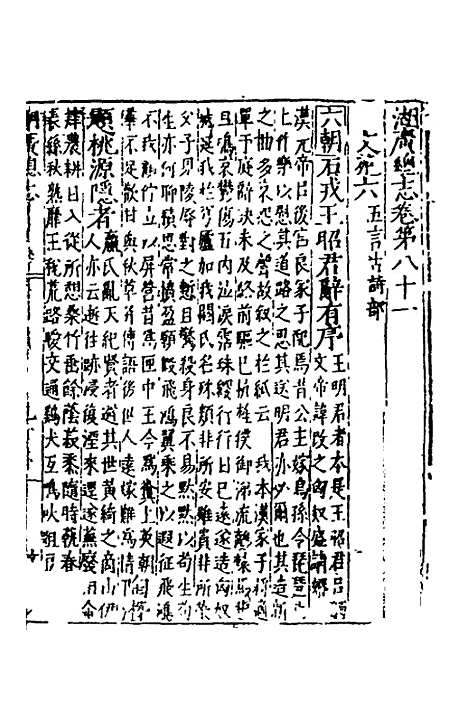 湖廣總志卷第八十一
文苑六 五言古詩部
六朝石戎王昭君辭有序 王明君者本是王昭君
文帝諱改之匈奴盛請婚
漢元帝以後宮良家子配焉昔公主嫁烏孫令琵琶
上作樂以慰其道路之思其送明君亦必爾也其造新
之曲多哀怨之聲故叙之於紙云 我本漢家子將
單于庭辭決未及終前驅已抗旌僕御涕流離轅馬
且鳴哀鬱傷五內泣淚霑珠纓行行日已遠遂造匈奴
城延我於穹廬加我閼氏名殊類非所安雖貴非所
父子見陵辱對之慙且驚殺身良不易默默以苟生苟
生亦何聊積思常憤盈願假飛鴻翼乘之以遐征飛鴻
不我顧佇立以屏營昔為匣中玉今為糞上英朝
華不足歡甘與秋草并傳語後世人遠嫁難為情陶
題桃源隱者 嬴氏亂天紀賢者避其世黃綺之商山伊
人亦云逝往跡浸復湮來逕遂蕪廢相命
肆農耕日入從所憩桑竹垂餘蔭菽黍隨時藝春
蠶長絲秋熟靡王稅荒路曖交通鷄犬互鳴吠俎豆